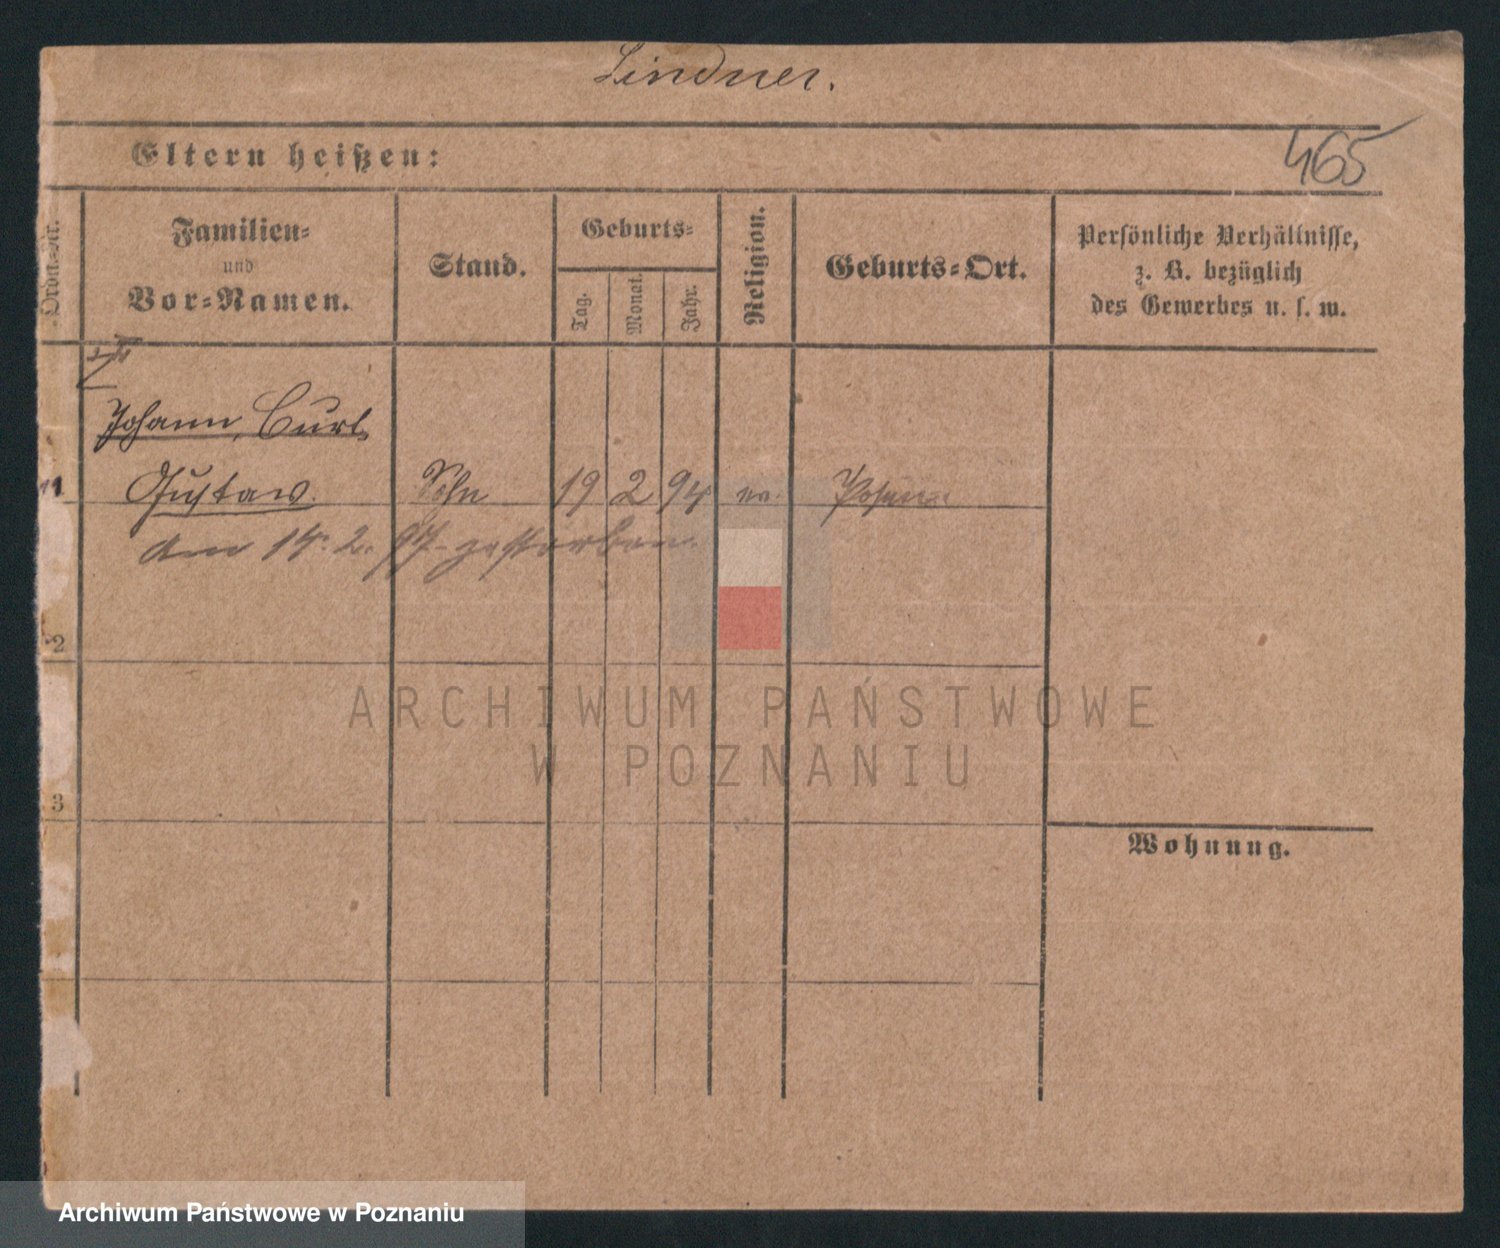 Lindner.
Eltern heißen:
465
Ordn.-Nr.
Familien-
und
Vor-Namen.
Stand.
Geburts-
Tag.
Monat.
Jahr.
Religion.
Geburts-Ort.
Persönliche Verhältnisse,
z. B. bezüglich
des Gewerbes u. s. w.
Johann, Curt
11 Gustaw. Sohn 19 2 94 ev. Posen
Am 14. 2. 97 gestorben.
2
3
Wohnung.
ARCHIWUM PAŃSTWOWE
W POZNANIU
Archiwum Państwowe w Poznaniu